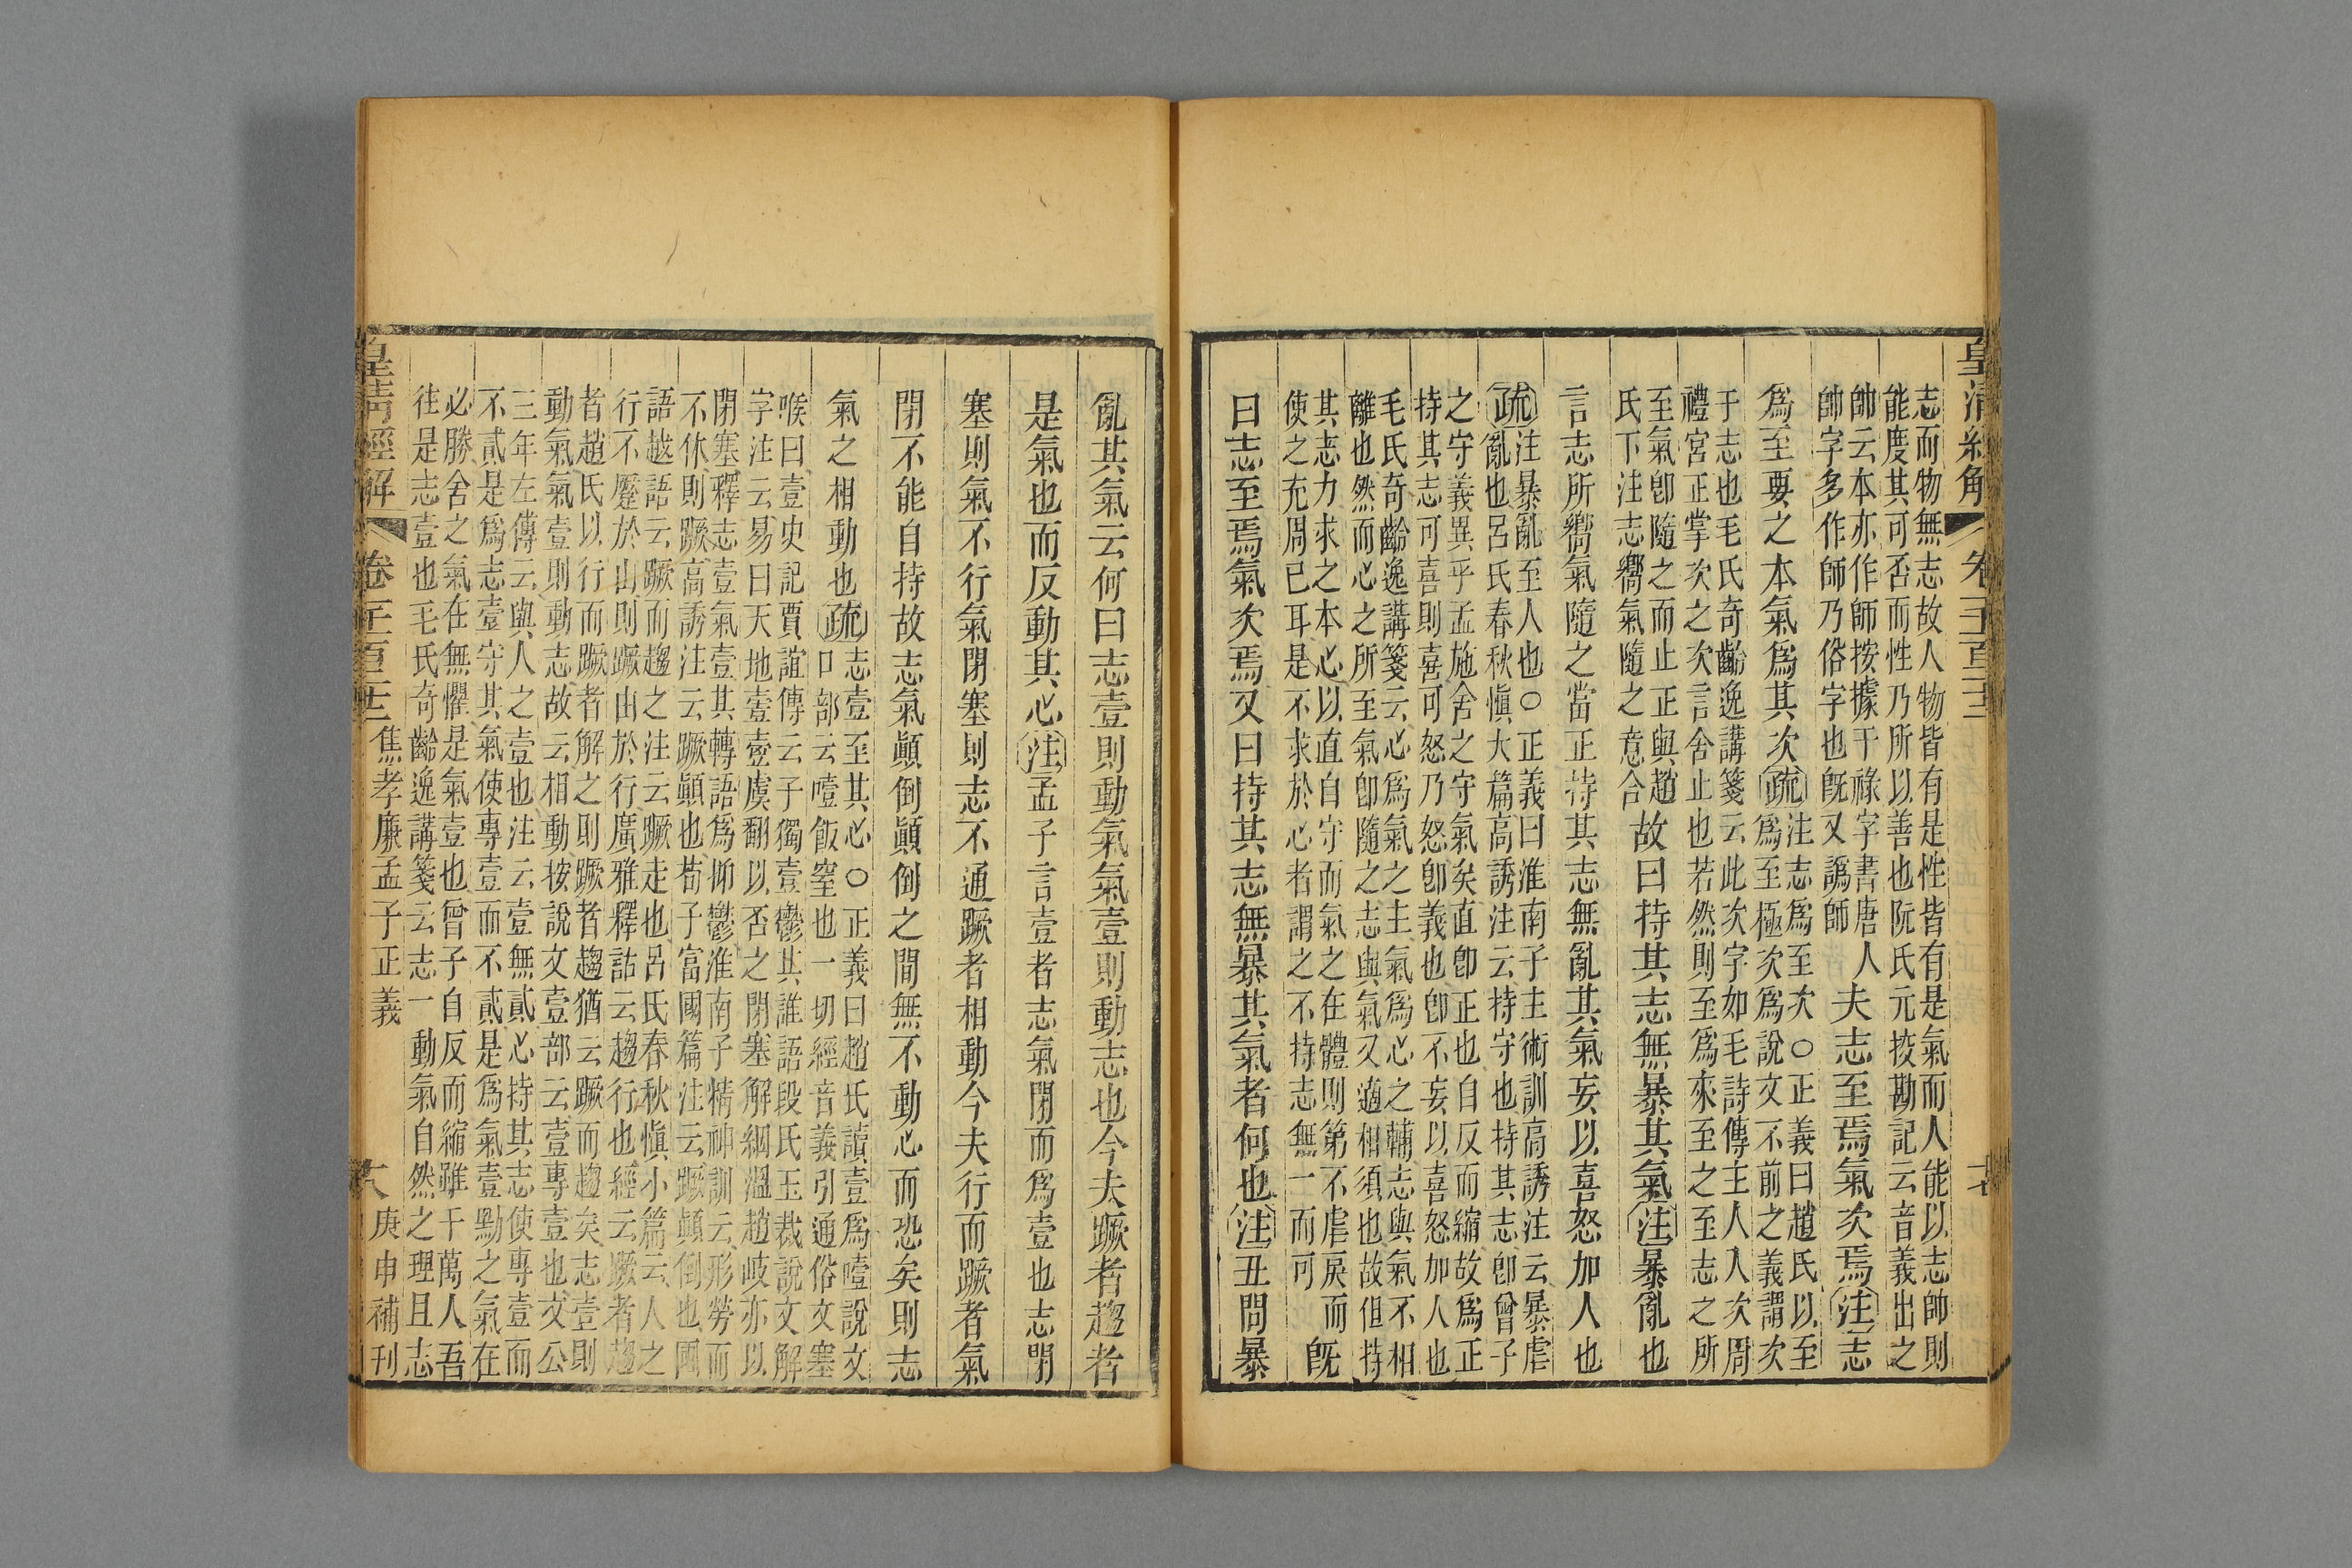 皇清經解
卷一千一百二十二
十七
志而物無志故人物皆有是性皆有是氣而人能以志帥則
能度其可否而性乃所以善也阮氏元挍勘記云音義出之
帥云本亦作師按據干祿字書唐人
帥字多作師乃俗字也旣又譌師
夫志至焉氣次焉注志
爲至要之本氣爲其次疏
注志爲至次○正義曰趙氏以至
爲至極次爲說文不前之義謂次
于志也毛氏奇齡逸講箋云此次字如毛詩傳主人入次周
禮宮正掌次之次言舍止也若然則至爲來至之至志之所
至氣卽隨之而止正與趙
氏下注志嚮氣隨之意合
故曰持其志無暴其氣注暴亂也
言志所嚮氣隨之當正持其志無亂其氣妄以喜怒加人也
疏
注暴亂至人也○正義曰淮南子主術訓高誘注云暴虐
亂也呂氏春秋愼大篇高誘注云持守也持其志卽曾子
之守義異乎孟施舍之守氣矣直卽正也自反而縮故爲正
持其志可喜則喜可怒乃怒卽義也卽不妄以喜怒加人也
毛氏奇齡逸講箋云心爲氣之主氣爲心之輔志與氣不相
離也然而心之所至氣卽隨之志與氣又適相須也故但持
其志力求之本心以直自守而氣之在體則第不虐戾而
使之充周已耳是不求於心者謂之不持志無一而可
旣
曰志至焉氣次焉又曰持其志無暴其氣者何也注丑問暴
亂其氣云何曰志壹則動氣氣壹則動志也今夫蹶者趨者
是氣也而反動其心注孟子言壹者志氣閉而爲壹也志閉
塞則氣不行氣閉塞則志不通蹶者相動今夫行而蹶者氣
閉不能自持故志氣顚倒顚倒之間無不動心而恐矣則志
氣之相動也疏
志壹至其心○正義曰趙氏讀壹爲噎說文
口部云噎飯窒也一切經音義引通俗文塞
喉曰壹史記賈誼傳云子獨壹鬱其誰語段氏玉裁說文解
字注云易曰天地壹壹虞翻以否之閉塞解絪縕趙岐亦以
閉塞釋志壹氣壹其轉語爲抑鬱淮南子精神訓云形勞而
不休則蹶高誘注云蹶顚也荀子富國篇注云蹶顚倒也國
語越語云蹶而趨之注云蹶走也呂氏春秋愼小篇云人之
行不蹙於山則蹶由於行廣雅釋詁云趨行也經云蹶者趨
者趙氏以行而蹶者解之則蹶者趨猶云蹶而趨矣志壹則
動氣氣壹則動志故云相動按說文壹部云壹專壹也文公
三年左傳云與人之壹也注云壹無貳心持其志使專壹而
不貳是爲志壹守其氣使專壹而不貳是爲氣壹黝之氣在
必勝舍之氣在無懼是氣壹也曾子自反而縮雖千萬人吾
往是志壹也毛氏奇齡逸講箋云志一動氣自然之理且志
皇清經解
卷一千一百二十二
焦孝廉孟子正義
大
庚申補刊